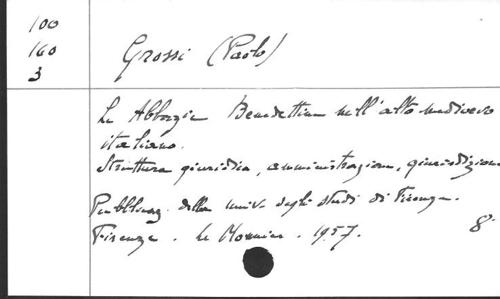 100
160
3
Grossi (Paolo)
Le Abbazie Benedettine nell'alto medioevo
italiano.
Struttura giuridica, amministrazione, giurisdizione
Pubblicaz. della univ. degli studi di Firenze.
Firenze. Le Monnier. 1957. 8°